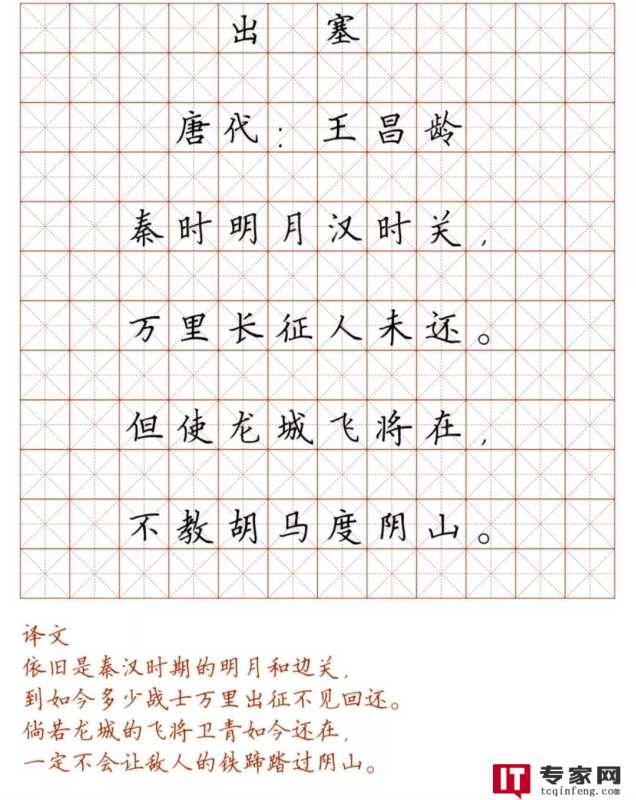 出塞
唐代：王昌龄
秦时明月汉时关，
万里长征人未还。
但使龙城飞将在，
不教胡马度阴山。
译文
依旧是秦汉时期的明月和边关，
到如今多少战士万里出征不见回还。
倘若龙城的飞将卫青如今还在，
一定不会让敌人的铁蹄踏过阴山。
IT专家网
tcqinfeng.com